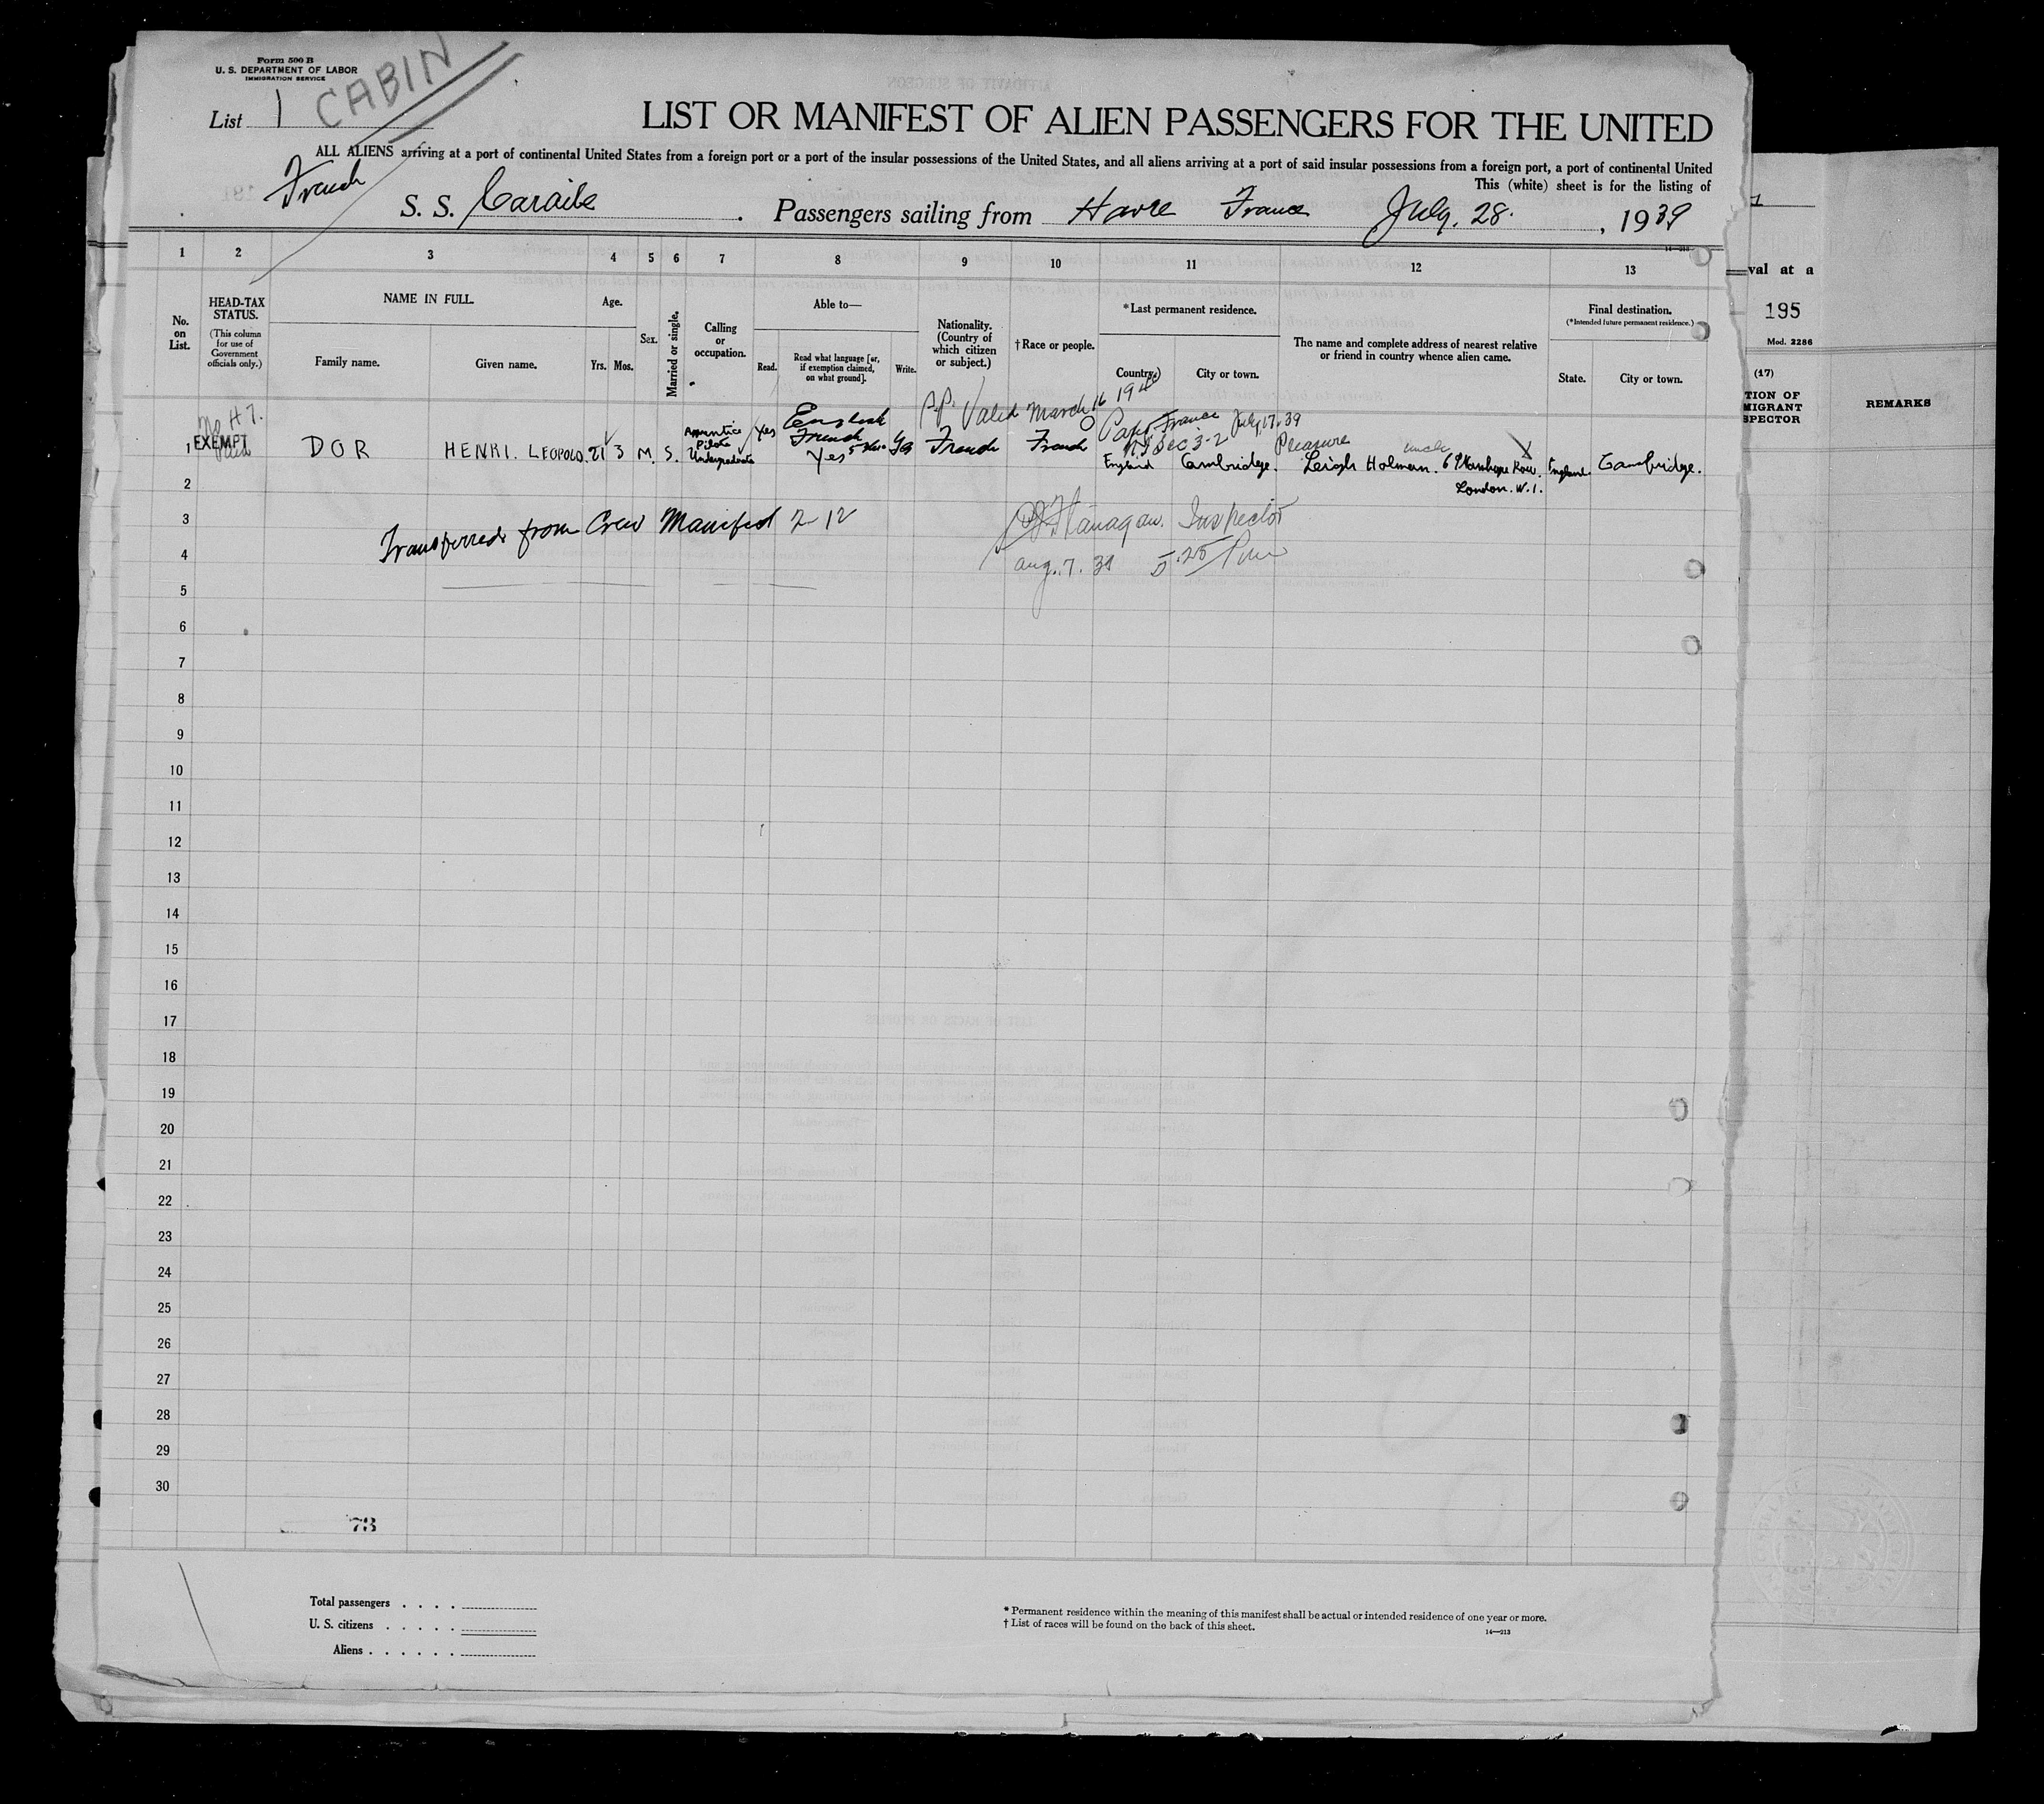 Form 500 B
U. S. DEPARTMENT OF LABOR
IMMIGRATION SERVICE
List 1 CABIN
LIST OR MANIFEST OF ALIEN PASSENGERS FOR THE UNITED
ALL ALIENS arriving at a port of continental United States from a foreign port or a port of the insular possessions of the United States, and all aliens arriving at a port of said insular possessions from a foreign port, a port of continental United
This (white) sheet is for the listing of
French
S. S. Caraibe. Passengers sailing from Havre France July. 28., 1939
14—213
1 2 3 4 5 6 7 8 9 10 11 12 13
No. on List.
HEAD-TAX STATUS.
(This column for use of Government officials only.)
NAME IN FULL.
Family name.
Given name.
Age.
Yrs. Mos.
Sex.
Married or single.
Calling or occupation.
Able to—
Read.
Read what language [or, if exemption claimed, on what ground].
Write.
Nationality. (Country of which citizen or subject.)
† Race or people.
*Last permanent residence.
Country.
City or town.
The name and complete address of nearest relative or friend in country whence alien came.
Final destination.
(*Intended future permanent residence.)
State.
City or town.
P.P. Valid March 16 1940
No H T.
English
Paris France July 17. 39
Sec 3-2 Pleasure
uncle
1 EXEMPT DOR HENRI. LEOPOLD. 21 3 M. S. Apprentice Pilote Undergraduate Yes French Yes French French England Cambridge. Leigh Holman. 69 Stanhope Row. London. W.1. England Cambridge.
2
3
Transferred from Crew Manifest 2-12
Flanagan. Inspector
4
aug. 7. 39 5.25 Pm
5
6
7
8
9
10
11
12
13
14
15
16
17
18
19
20
21
22
23
24
25
26
27
28
29
30
73
Total passengers . . . .
U. S. citizens . . . . .
Aliens . . . . . .
* Permanent residence within the meaning of this manifest shall be actual or intended residence of one year or more.
† List of races will be found on the back of this sheet.
14—213
1
val at a
195
Mod. 2286
(17)
TION OF
MIGRANT
SPECTOR
REMARKS